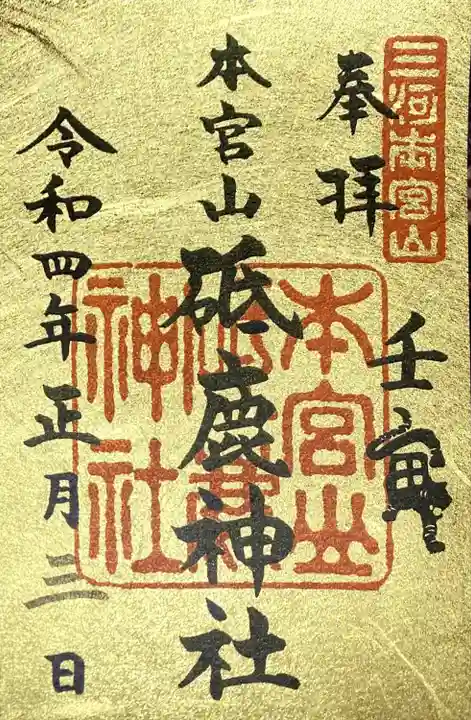 三河本宮山
奉拝
壬寅
本宮山
砥鹿神社
本宮山
神社
令和四年正月三日